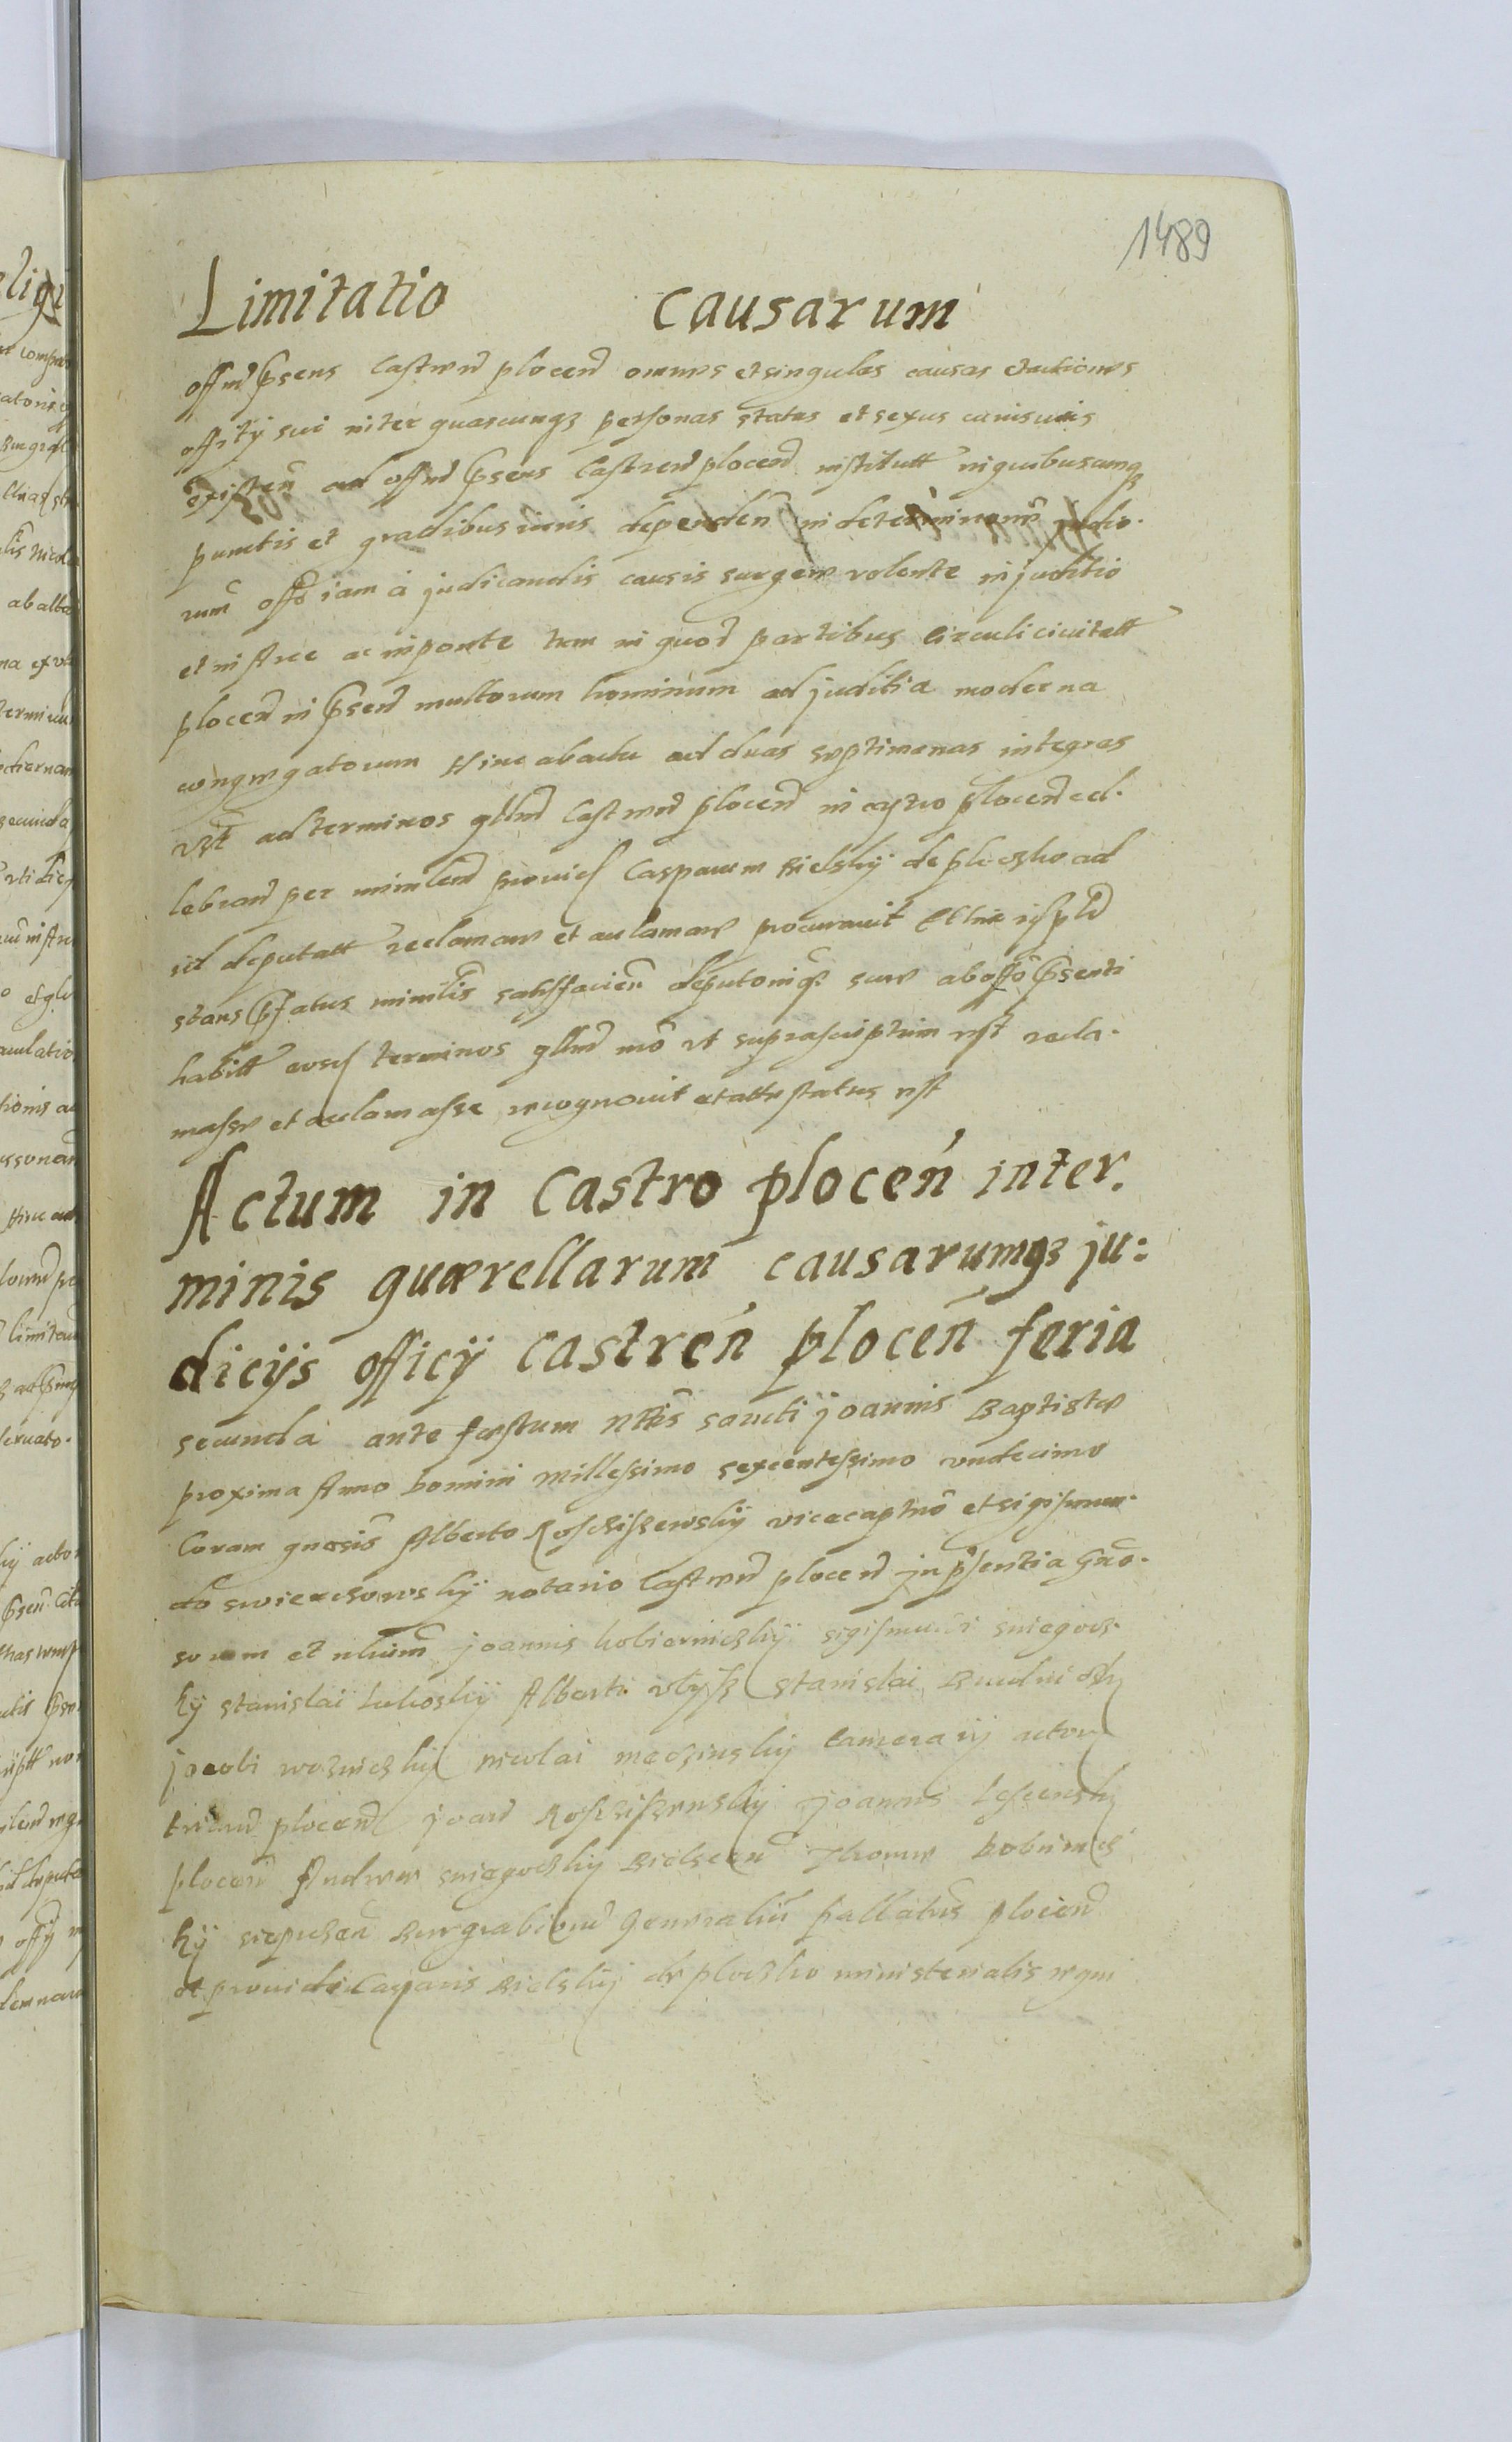 1489
Limitatio causarum
offm psens Castren plocen omnes et singulas causas et actiones
offity sui inter quascunqz personas status et sexus cuiusuis
existen ad offm psens Castren plocen institutt in quibuscunqz
punctis et gradibus iuris dependen in determinone judio.
rum offo iam à judicandis causis surgere volente in juditio
et in Arce ac in ponte tum in quod partibus Circuli civitatt
plocen in psen multorum hominum ad juditia moderna
congregatorum Hinc ab actu ad duas septimanas integras
ad terminos gllnd Castren plocen in castro plocen cel.
lebrand per minlem provid Casparum Bielskij de ploczko ad
id deputatt reclamare et aclamare procuravit
stans pfatus minilis satisfacien deputoniqz suae ab offo psenti
habitt eosd terminos gllnd mo ut suprascriptum est recla.
masse et aclamasse recognovit et attestatus est
Actum in Castro plocen inter.
minis quærellarum causarumqz ju:
dicijs officij castren plocen feria
secunda ante festum Nttis sancti joannis Baptistæ
proxima Anno Domini Millessimo sexcentessimo undecimo
Coram gnosis Alberto Rosciszewskij vicecaptno et sigismun.
do swierczowskij notario Castren plocen in psentia Gno.
sorum et nlium joannis kobiernickij sigismundi sniegoc.
kij stanislai Lukoskij Alberti stanislai
jacobi woznickij nicolai meczinskij Camerarij
plocen joan Rosciszewskij joannis
plocen Andreæ sniegockij Bielscen Thomæ Dobrinic
kij sieprcen Burgrabiorum Generaliu pallatus plocen
et providi Casparis Bielskij de ploczko ministerialis regni